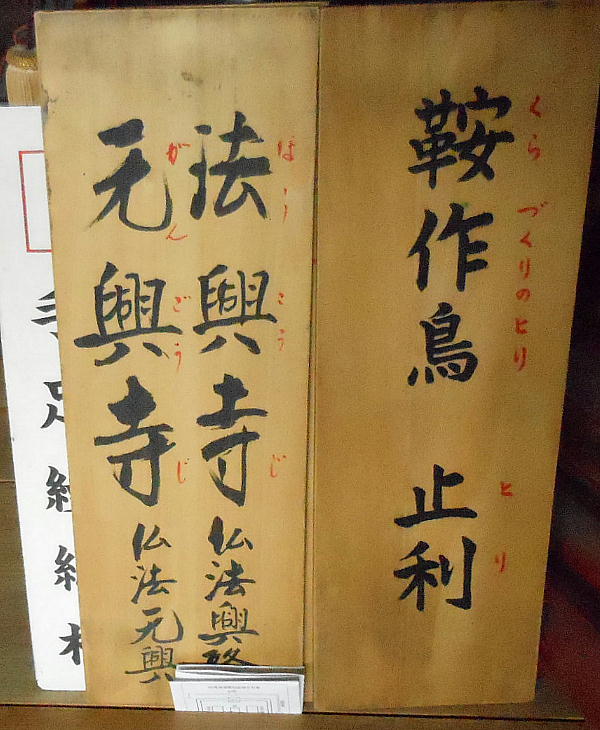 鞍作鳥 止利
くらづくりのとり とり
法興寺 仏法興
ほうこうじ
元興寺 仏法元興
がんごうじ
手足